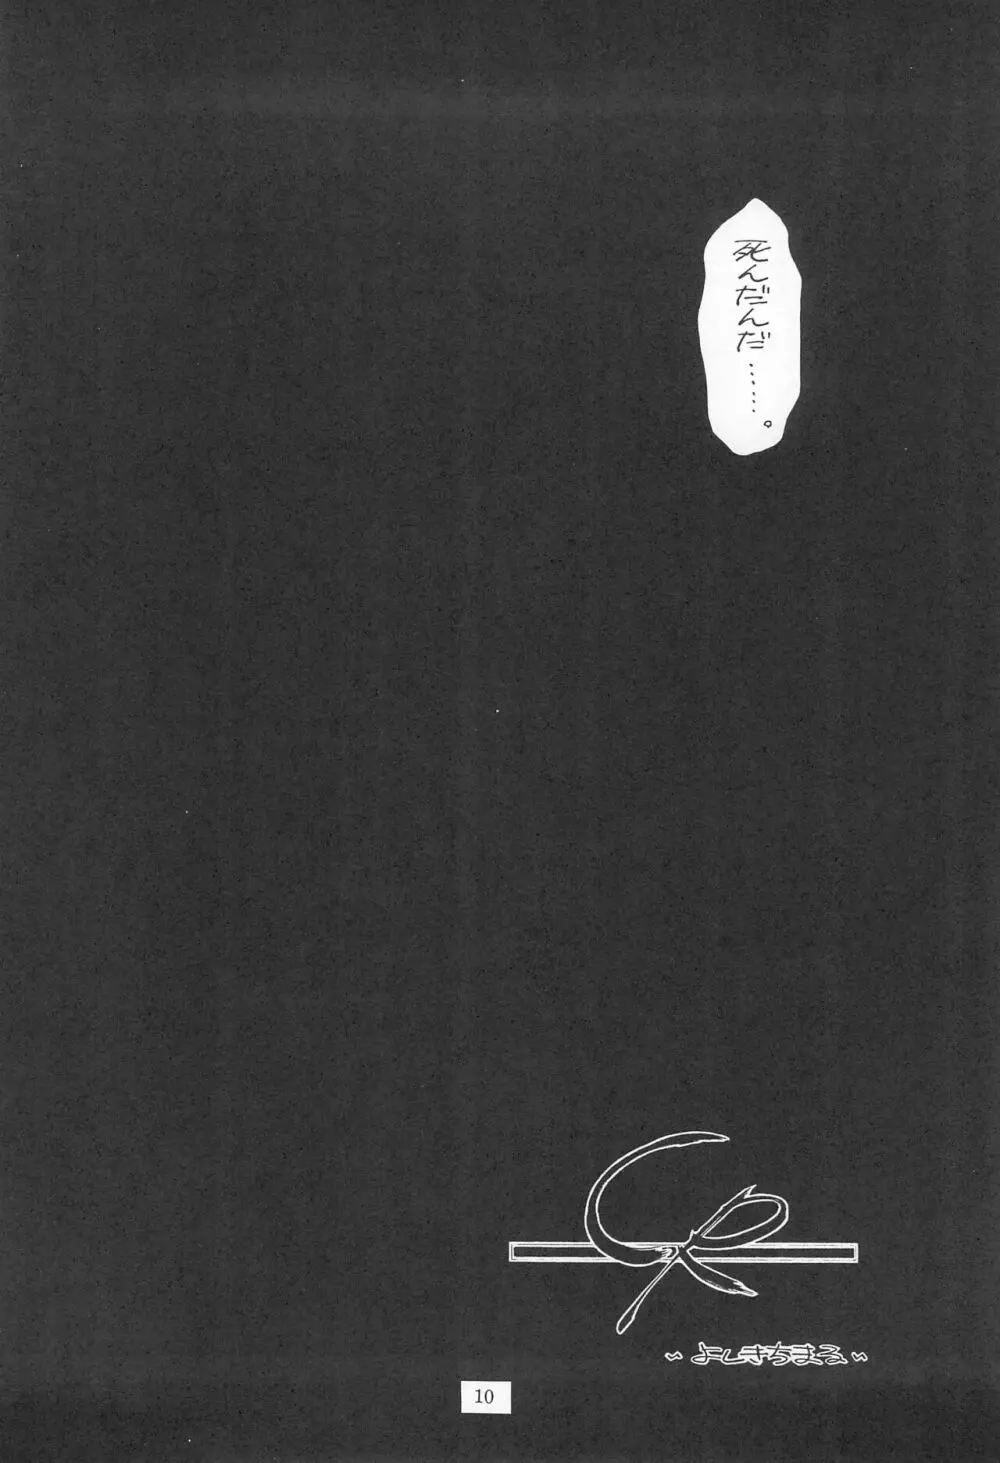 死んだんだ……。
～よしきちまる～
10